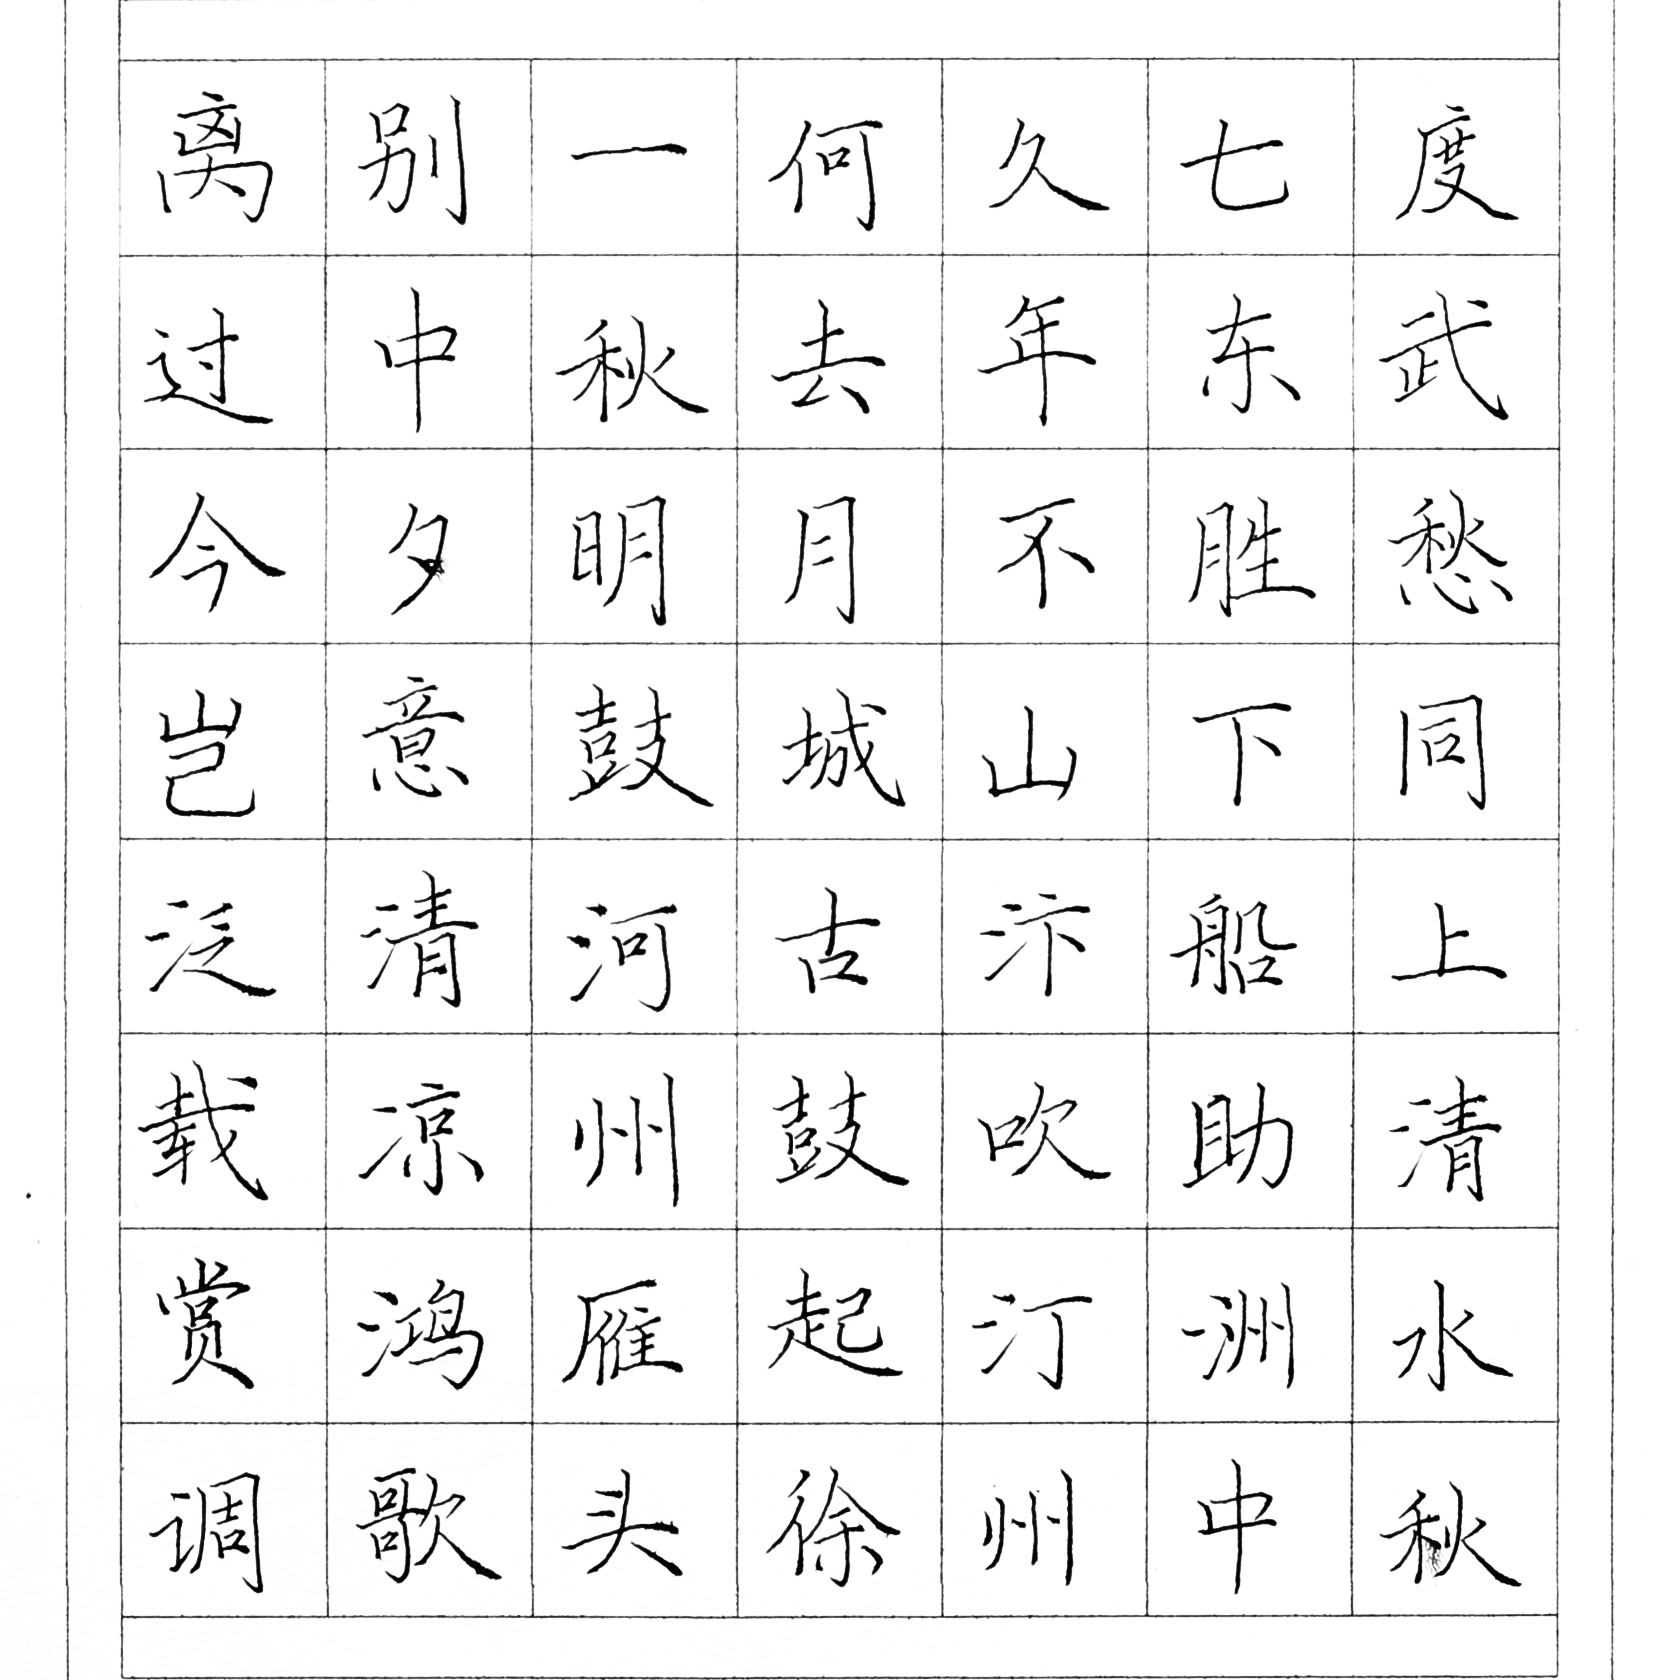 离别一何久七度
过中秋去年东武
今夕明月不胜愁
岂意鼓城山下同
泛清河古汴船上
载凉州鼓吹助清
赏鸿雁起汀洲水
调歌头徐州中秋